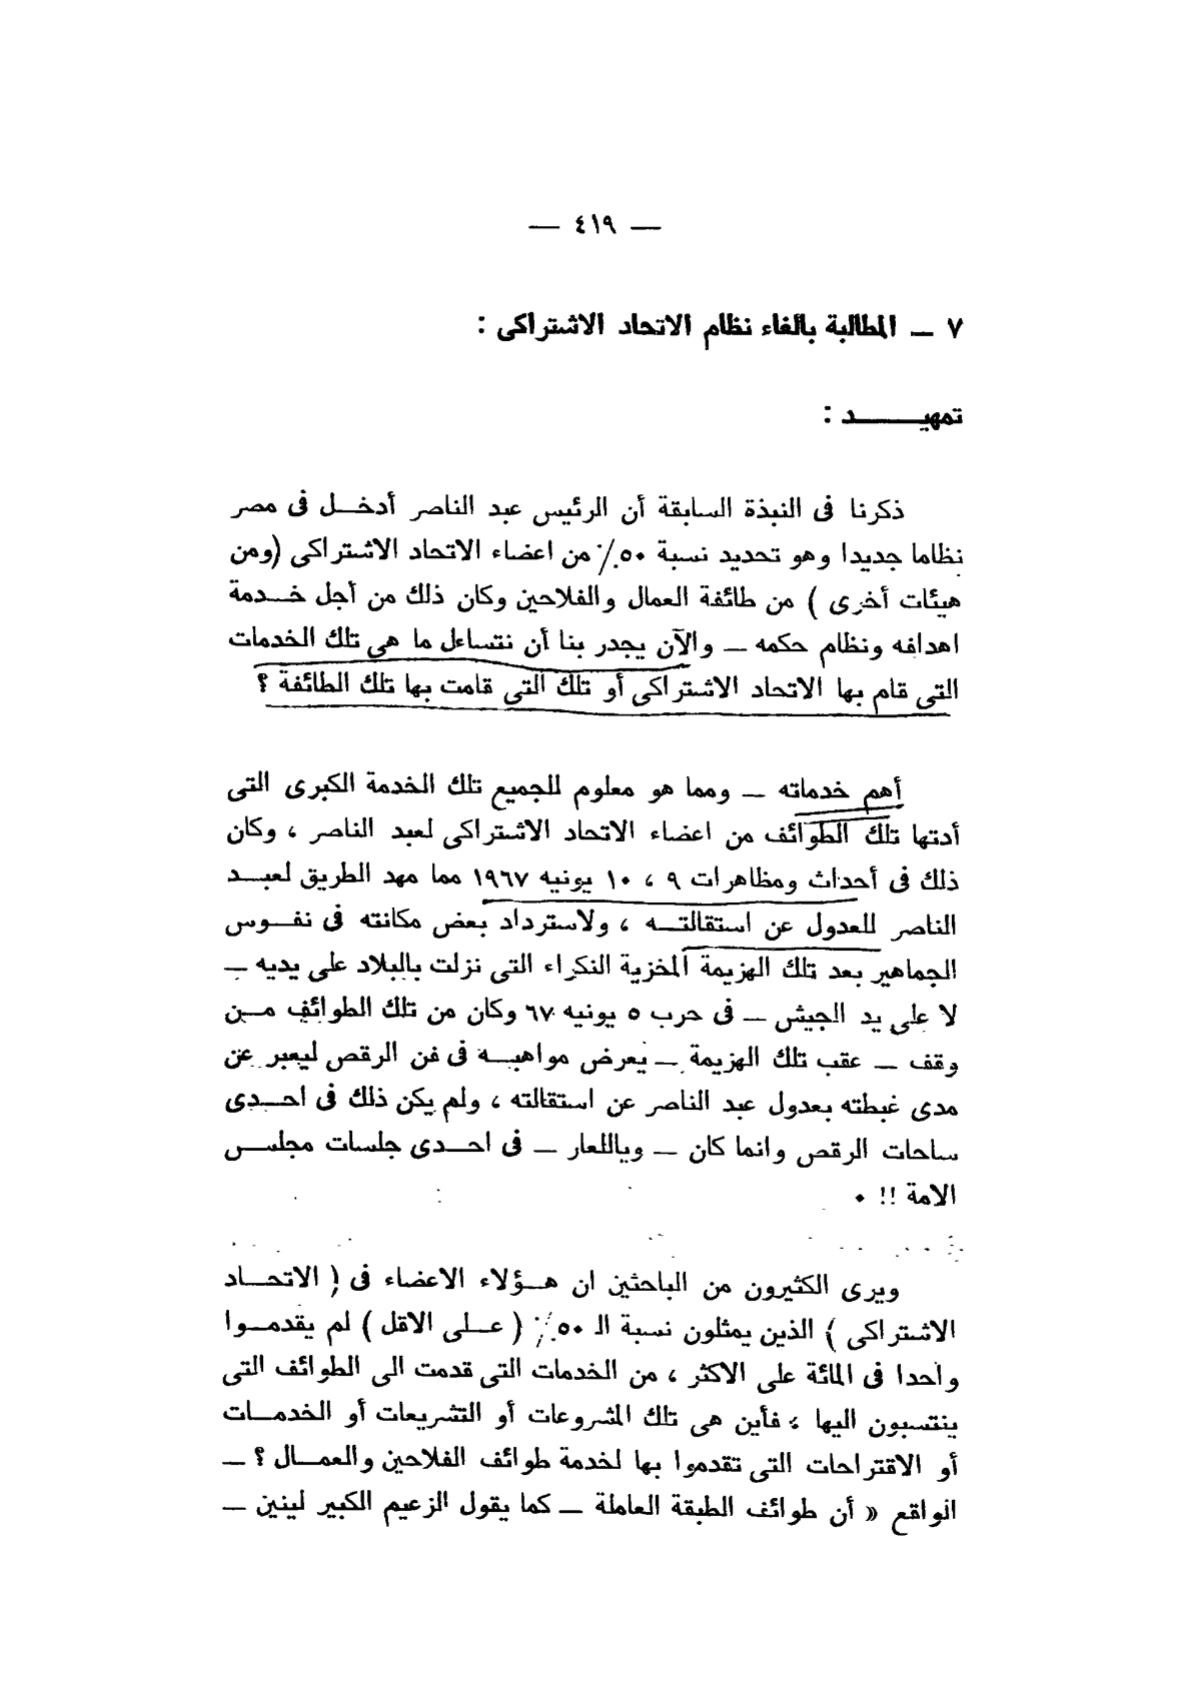 — ٤١٩ —
٧ ــ المطالبة بالغاء نظام الاتحاد الاشتراكى :
تمهيـــــــــد :
ذكرنا فى النبذة السابقة أن الرئيس عبد الناصر أدخــل فى مصر
نظاما جديدا وهو تحديد نسبة ٥٠٪ من اعضاء الاتحاد الاشتراكى (ومن
هيئات أخرى ) من طائفة العمال والفلاحين وكان ذلك من أجل خـــدمة
اهدافه ونظام حكمه ــ والآن يجدر بنا أن نتساءل ما هى تلك الخدمات
التى قام بها الاتحاد الاشتراكى أو تلك التى قامت بها تلك الطائفة ؟
أهم خدماته ــ ومما هو معلوم للجميع تلك الخدمة الكبرى التى
أدتها تلك الطوائف من اعضاء الاتحاد الاشتراكى لعبد الناصر ، وكان
ذلك فى أحداث ومظاهرات ٩ ، ١٠ يونيه ١٩٦٧ مما مهد الطريق لعبــد
الناصر للعدول عن استقالتــه ، ولاسترداد بعض مكانته فى نفــوس
الجماهير بعد تلك الهزيمة المخزية النكراء التى نزلت بالبلاد على يديه ــ
لا على يد الجيش ــ فى حرب ٥ يونيه ٦٧ وكان من تلك الطوائف مــن
وقف ــ عقب تلك الهزيمة ــ يعرض مواهبــه فى فن الرقص ليعبر عن
مدى غبطته بعدول عبد الناصر عن استقالته ، ولم يكن ذلك فى احــدى
ساحات الرقص وانما كان ــ وياللعار ــ فى احــدى جلسات مجلــس
الامة !! ٠
ويرى الكثيرون من الباحثين ان هــؤلاء الاعضاء فى ( الاتحــاد
الاشتراكى ) الذين يمثلون نسبة الـ ٥٠٪ ( عــلى الاقل ) لم يقدمــوا
واحدا فى المائة على الاكثر ، من الخدمات التى قدمت الى الطوائف التى
ينتسبون اليها ، فأين هى تلك المشروعات أو التشريعات أو الخدمــات
أو الاقتراحات التى تقدموا بها لخدمة طوائف الفلاحين والعمــال ؟ ــ
الواقع « أن طوائف الطبقة العاملة ــ كما يقول الزعيم الكبير لينين ــ